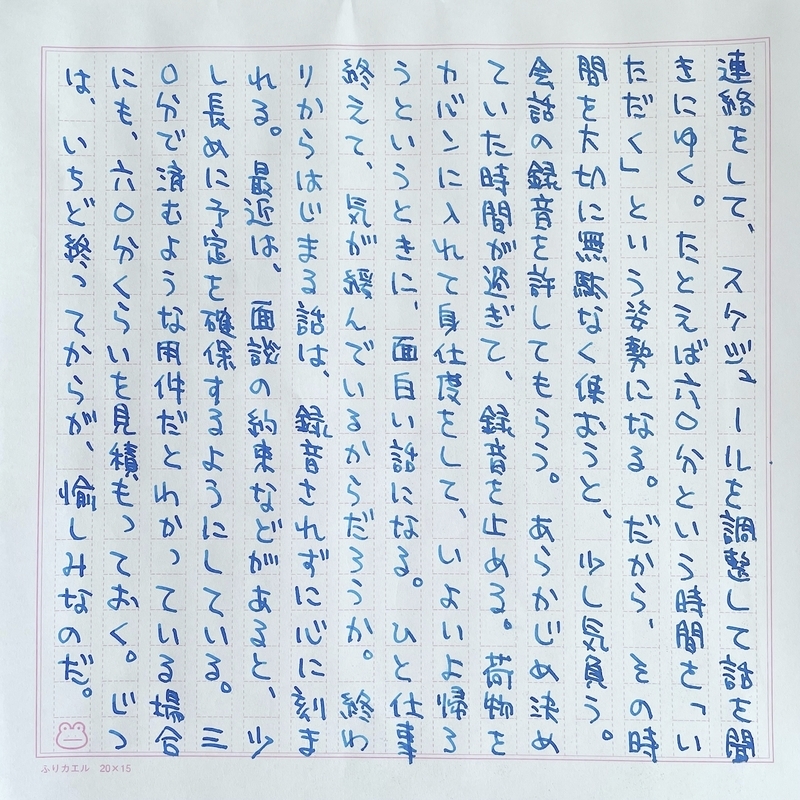 連絡をして、スケジュールを調整して話を聞
きにゆく。たとえば六〇分という時間を「い
ただく」という姿勢になる。だから、その時
間を大切に無駄なく使おうと、少し気負う。
会話の録音を許してもらう。あらかじめ決め
ていた時間が過ぎて、録音を止める。荷物を
カバンに入れて身仕度をして、いよいよ帰ろ
うというときに、面白い話になる。ひと仕事
終えて、気が緩んでいるからだろうか。終わ
りからはじまる話は、録音されずに心に刻ま
れる。最近は、面談の約束などがあると、少
し長めに予定を確保するようにしている。三
〇分で済むような用件だとわかっている場合
にも、六〇分くらいを見積もっておく。じつ
は、いちど終ってからが、愉しみなのだ。
ふりカエル 20×15